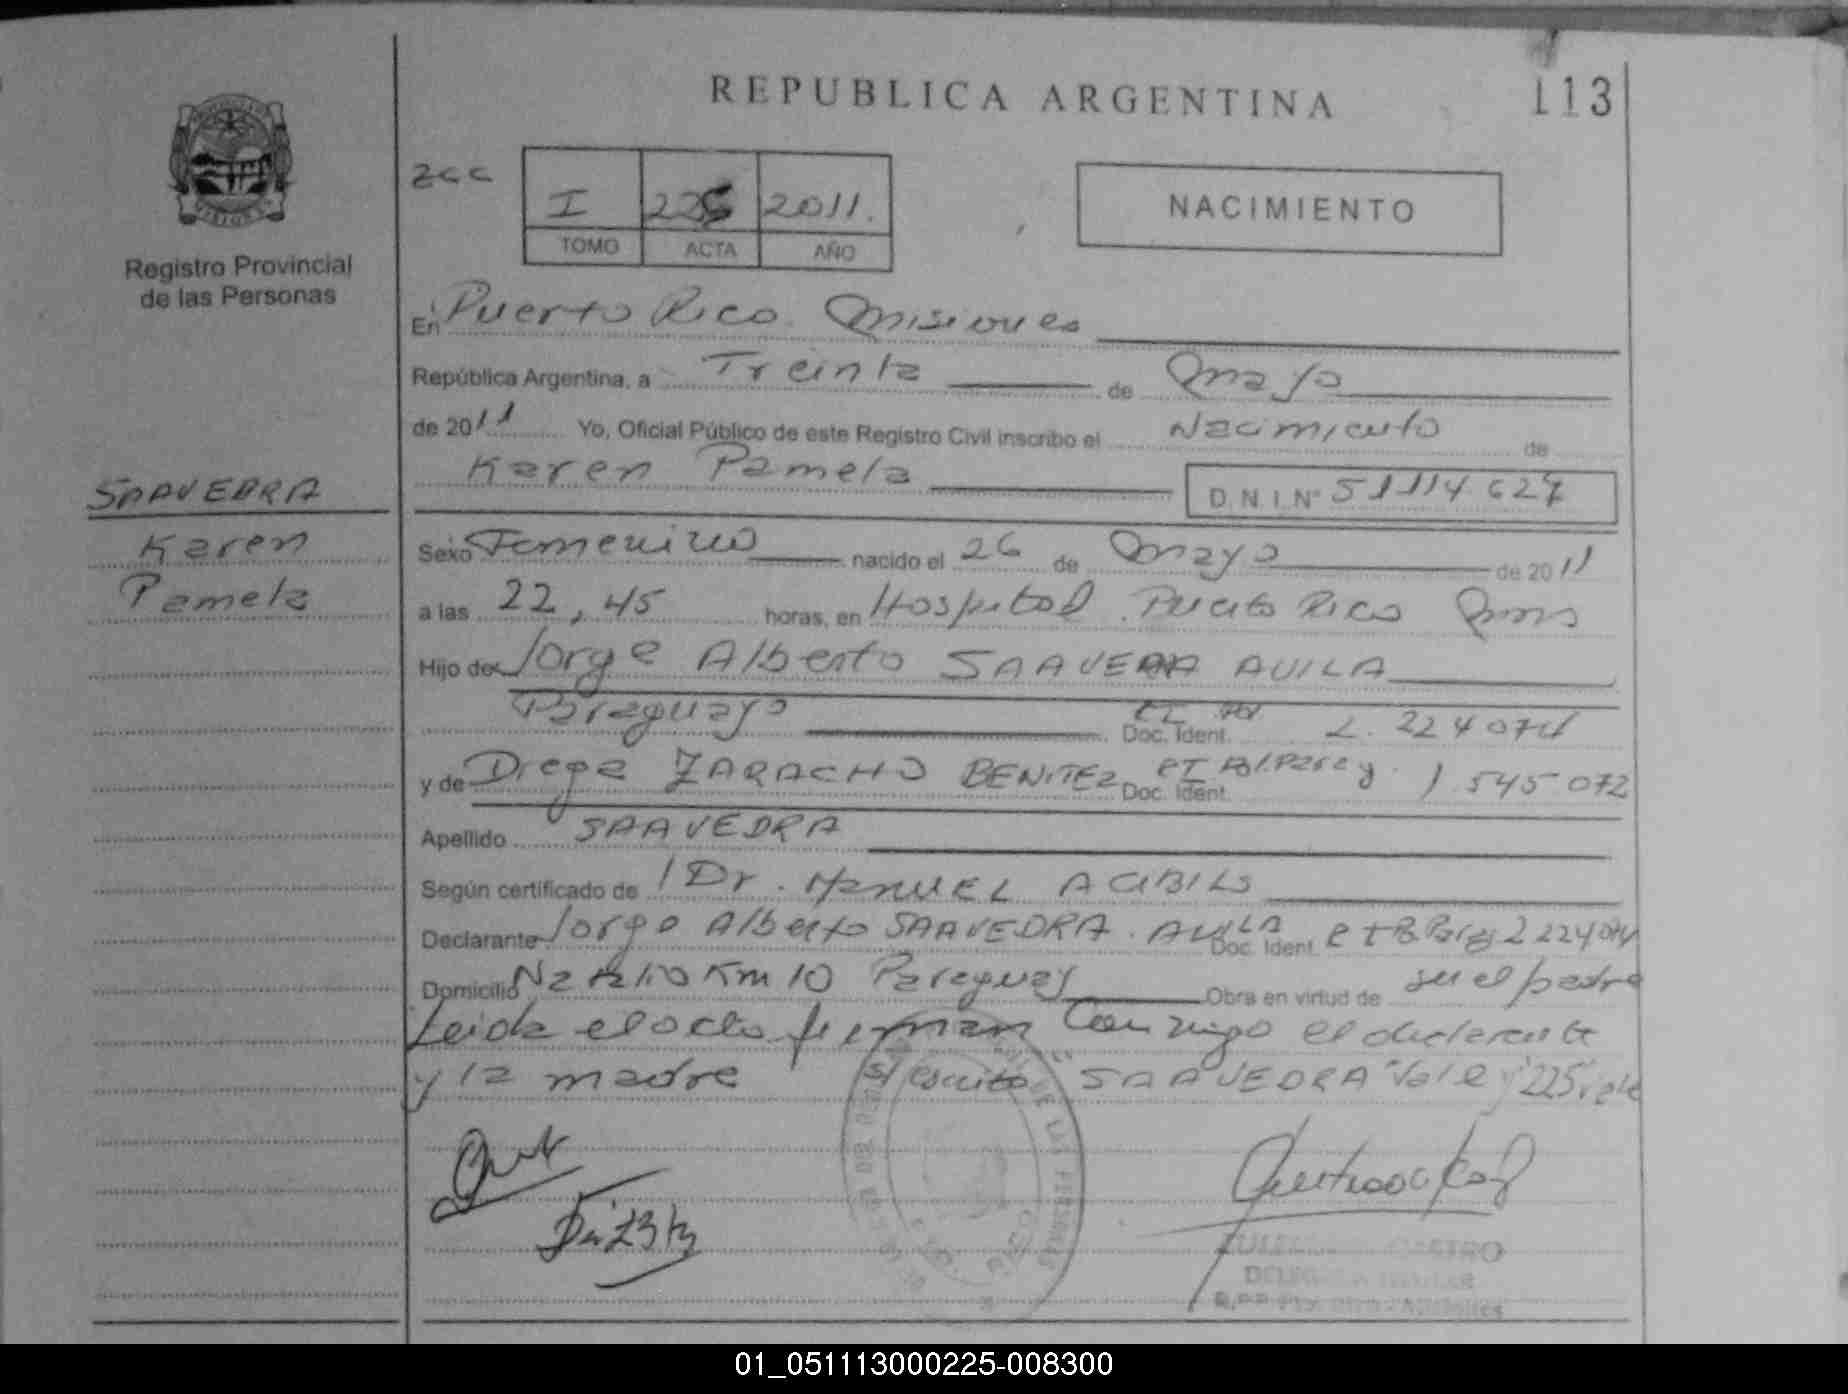 REPUBLICA ARGENTINA
113
Registro Provincial
de las Personas
I 225 2011.
TOMO ACTA AÑO
NACIMIENTO
En Puerto Rico Misiones
República Argentina, a Treinta de Mayo
de 2011 Yo, Oficial Público de este Registro Civil inscribo el Nacimiento de
Karen Pamela D.N.I.Nº 51114.627
SAAVEDRA
Karen
Pamela
Sexo Femenino nacido el 26 de Mayo de 2011
a las 22,45 horas, en Hospital Puerto Rico Mnes
Hijo de Jorge Alberto SAAVEDRA AVILA
Paraguayo CI Pol Doc. Ident. 2.224074
y de Diega ZARACHO BENITEZ CI Pol.Paragy. Doc. Ident. 1.545 072
Apellido SAAVEDRA
Según certificado de Dr. MANUEL
Declarante Jorge Alberto SAAVEDRA AVILA Doc. Ident. 2 224 074
Domicilio Natalio Km 10 Paraguay Obra en virtud de ser el padre
Leida el acta firman Conmigo el declarante
y la madre s/ escrito "SAAVEDRA" Vale y "225" vale
CASTRO
01_051113000225-008300